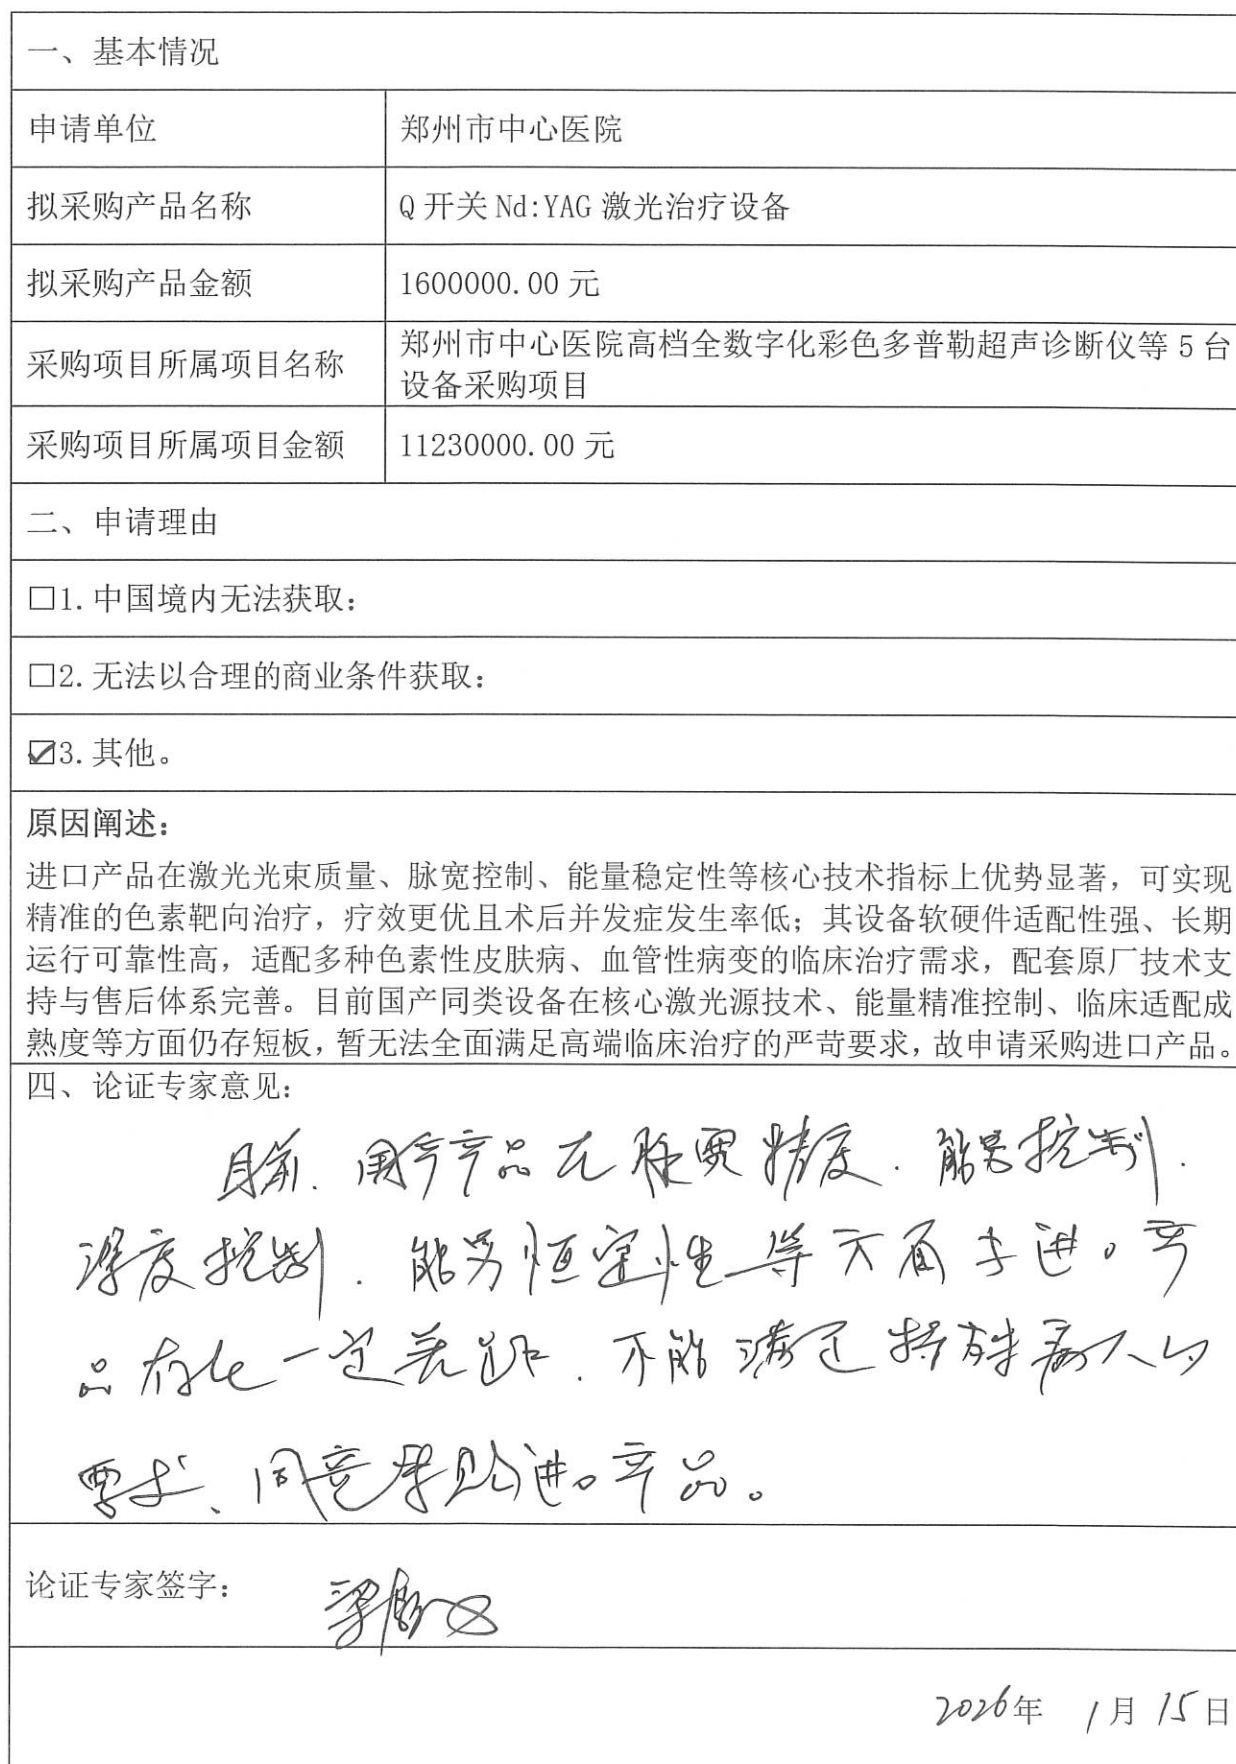 一、基本情况
申请单位
郑州市中心医院
拟采购产品名称
Q开关Nd:YAG激光治疗设备
拟采购产品金额
1600000.00元
采购项目所属项目名称
郑州市中心医院高档全数字化彩色多普勒超声诊断仪等5台
设备采购项目
采购项目所属项目金额
11230000.00元
二、申请理由
□1.中国境内无法获取：
□2.无法以合理的商业条件获取：
☑3.其他。
原因阐述：
进口产品在激光光束质量、脉宽控制、能量稳定性等核心技术指标上优势显著，可实现
精准的色素靶向治疗，疗效更优且术后并发症发生率低；其设备软硬件适配性强、长期
运行可靠性高，适配多种色素性皮肤病、血管性病变的临床治疗需求，配套原厂技术支
持与售后体系完善。目前国产同类设备在核心激光源技术、能量精准控制、临床适配成
熟度等方面仍存短板，暂无法全面满足高端临床治疗的严苛要求，故申请采购进口产品。
四、论证专家意见：
目前、国产产品在脉宽精度、能量控制、
深度控制、能量恒定性等方面与进口产
品存在一定差距、不能满足特殊病人的
要求、同意采购进口产品。
论证专家签字：
2026年 1月15日